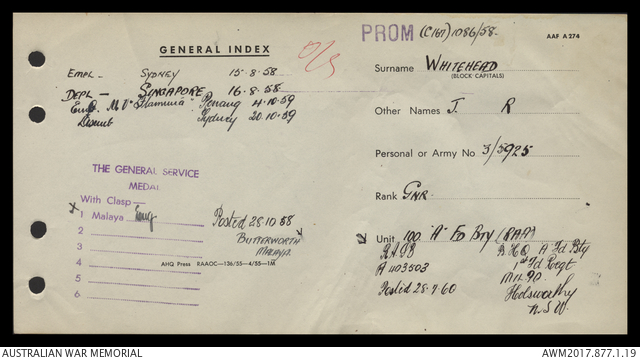 PROM (C167) 1086/58
AAF A274
GENERAL INDEX
O/S
Surname WHITEHEAD
(BLOCK CAPITALS)
EMPL – SYDNEY 15-8-58
DEPL – SINGAPORE 16-8-58
Emb. M.V. "Flaminia" Penang 4-10-59
Disemb Sydney 20-10-59
Other Names J. R
Personal or Army No 3/5925
Rank GNR.
THE GENERAL SERVICE
MEDAL
With Clasp
x 1 Malaya
2
3
4
5
6
Posted 28.10.58
BUTTERWORTH
MALAYA.
AHQ Press RAAOC—136/55—4/55—1M
Unit 100 "A" FD BTY (RAA)
A 403503
Posted 28.7.60
B.H.Q. A Fd Bty
1st Fd Regt
Holsworthy
N.S.W.
AUSTRALIAN WAR MEMORIAL
AWM2017.877.1.19